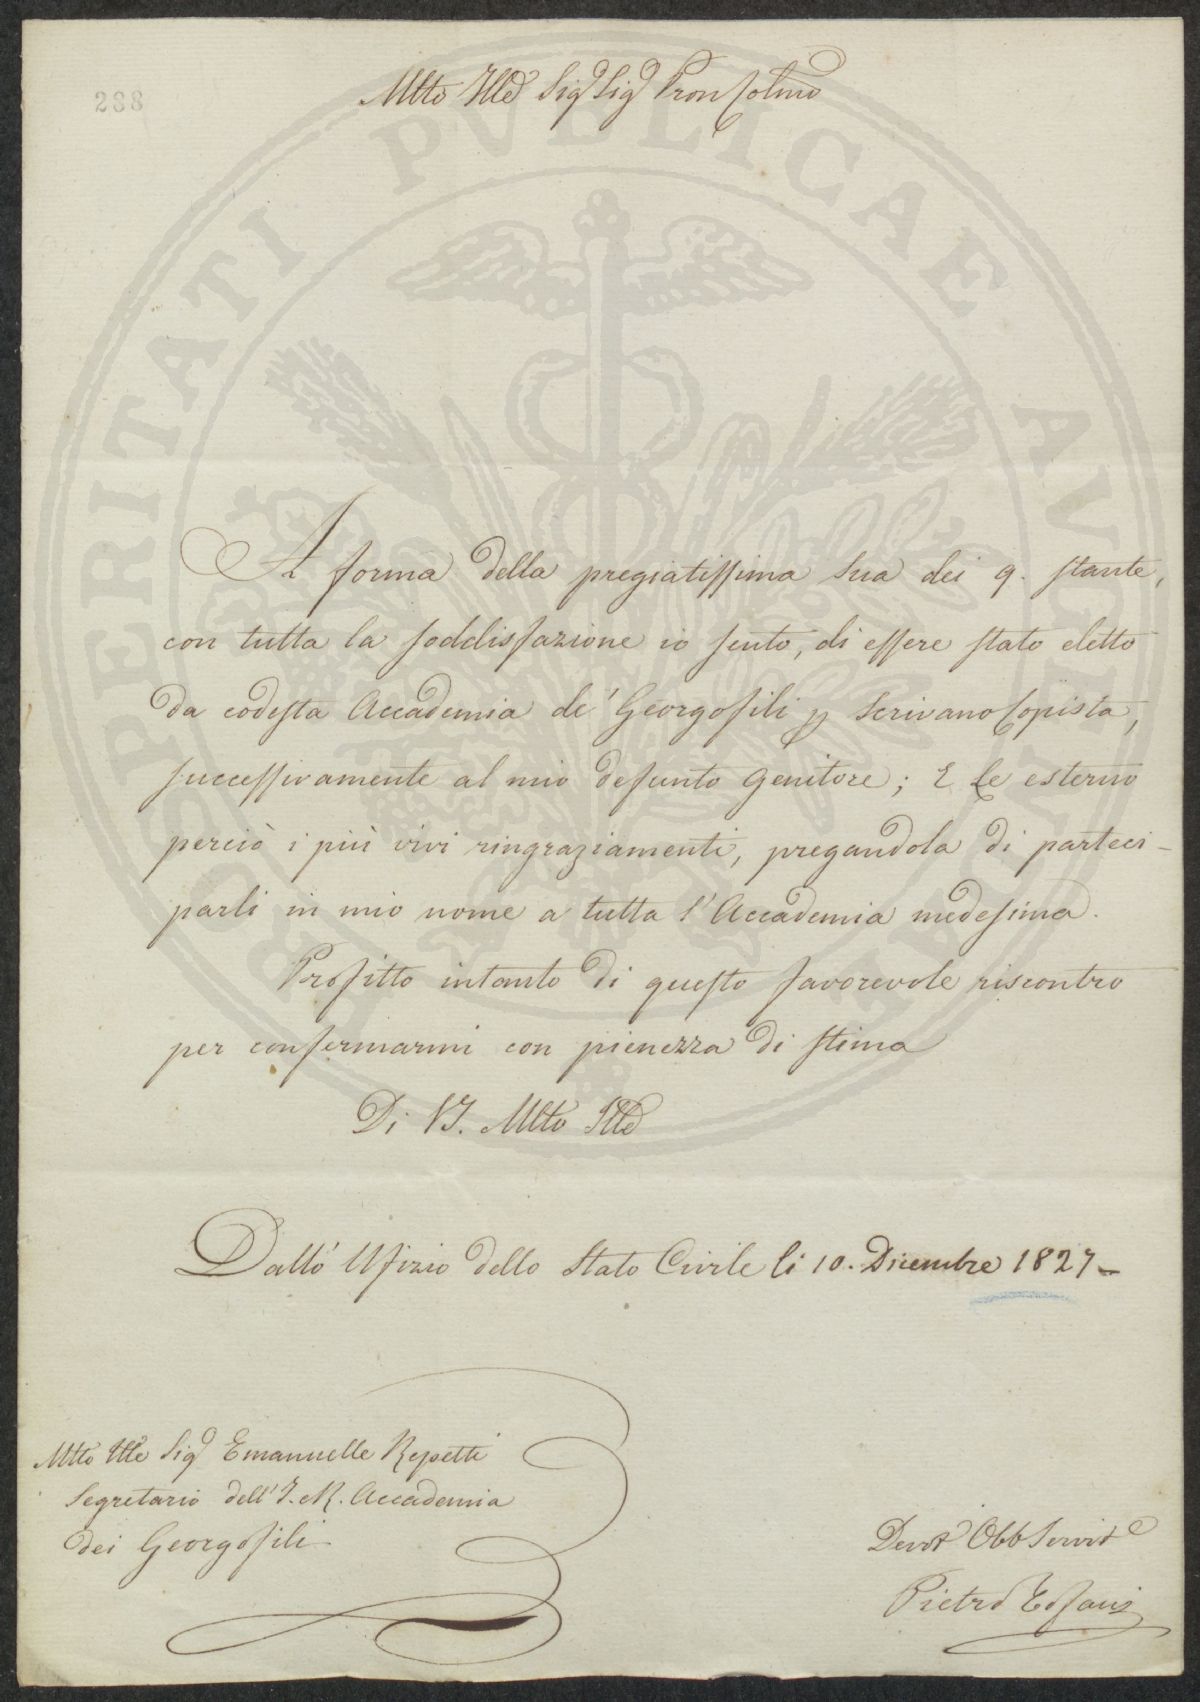 288
Mtto Ill.e Sig.e Sig.e Pron Colmo
A forma della pregiatissima Sua dei 9. stante,
con tutta la soddisfazione io sento, di essere stato eletto
da codesta Accademia de' Georgofili p Scrivano Copista,
successivamente al mio defunto Genitore; E Le esterno
perciò i più vivi ringraziamenti, pregandola di parteci-
parli in mio nome a tutta l'Accademia medesima.
Profitto intanto di questo favorevole riscontro
per confermarmi con pienezza di stima
Di VS. Mtto Ill.e
Dall' Ufizio dello Stato Civile li 10. Dicembre 1827 -
Mtto Ill.e Sig.e Emanuelle Repetti
Segretario dell' I. R. Accademia
dei Georgofili
Devot Obb Servit.e
Pietro
PROSPERITATI PVBLICAE AVGENDAE